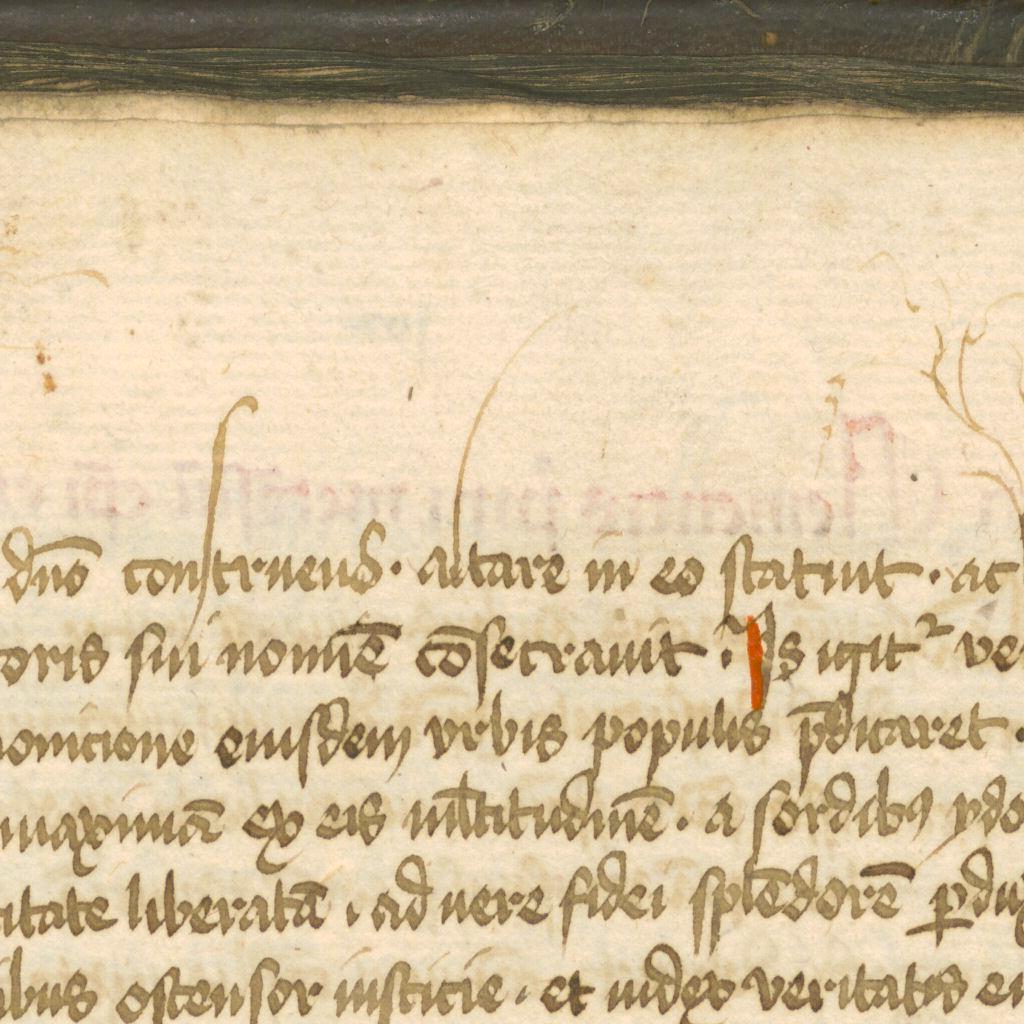 dn̄o construens · altare in eo statuit · ac
toris sui nomīe cōsecrauit · Is igit᷑ ve
monicione eiusdem vrbis populis p̄dicaret ·
maximā ex eis ml̄titudinē · a sordibꝯ ydo
itate liberatā · ad uere fidei splēdorē ꝑdux
ibus ostensor iusticie · et iudex veritatis